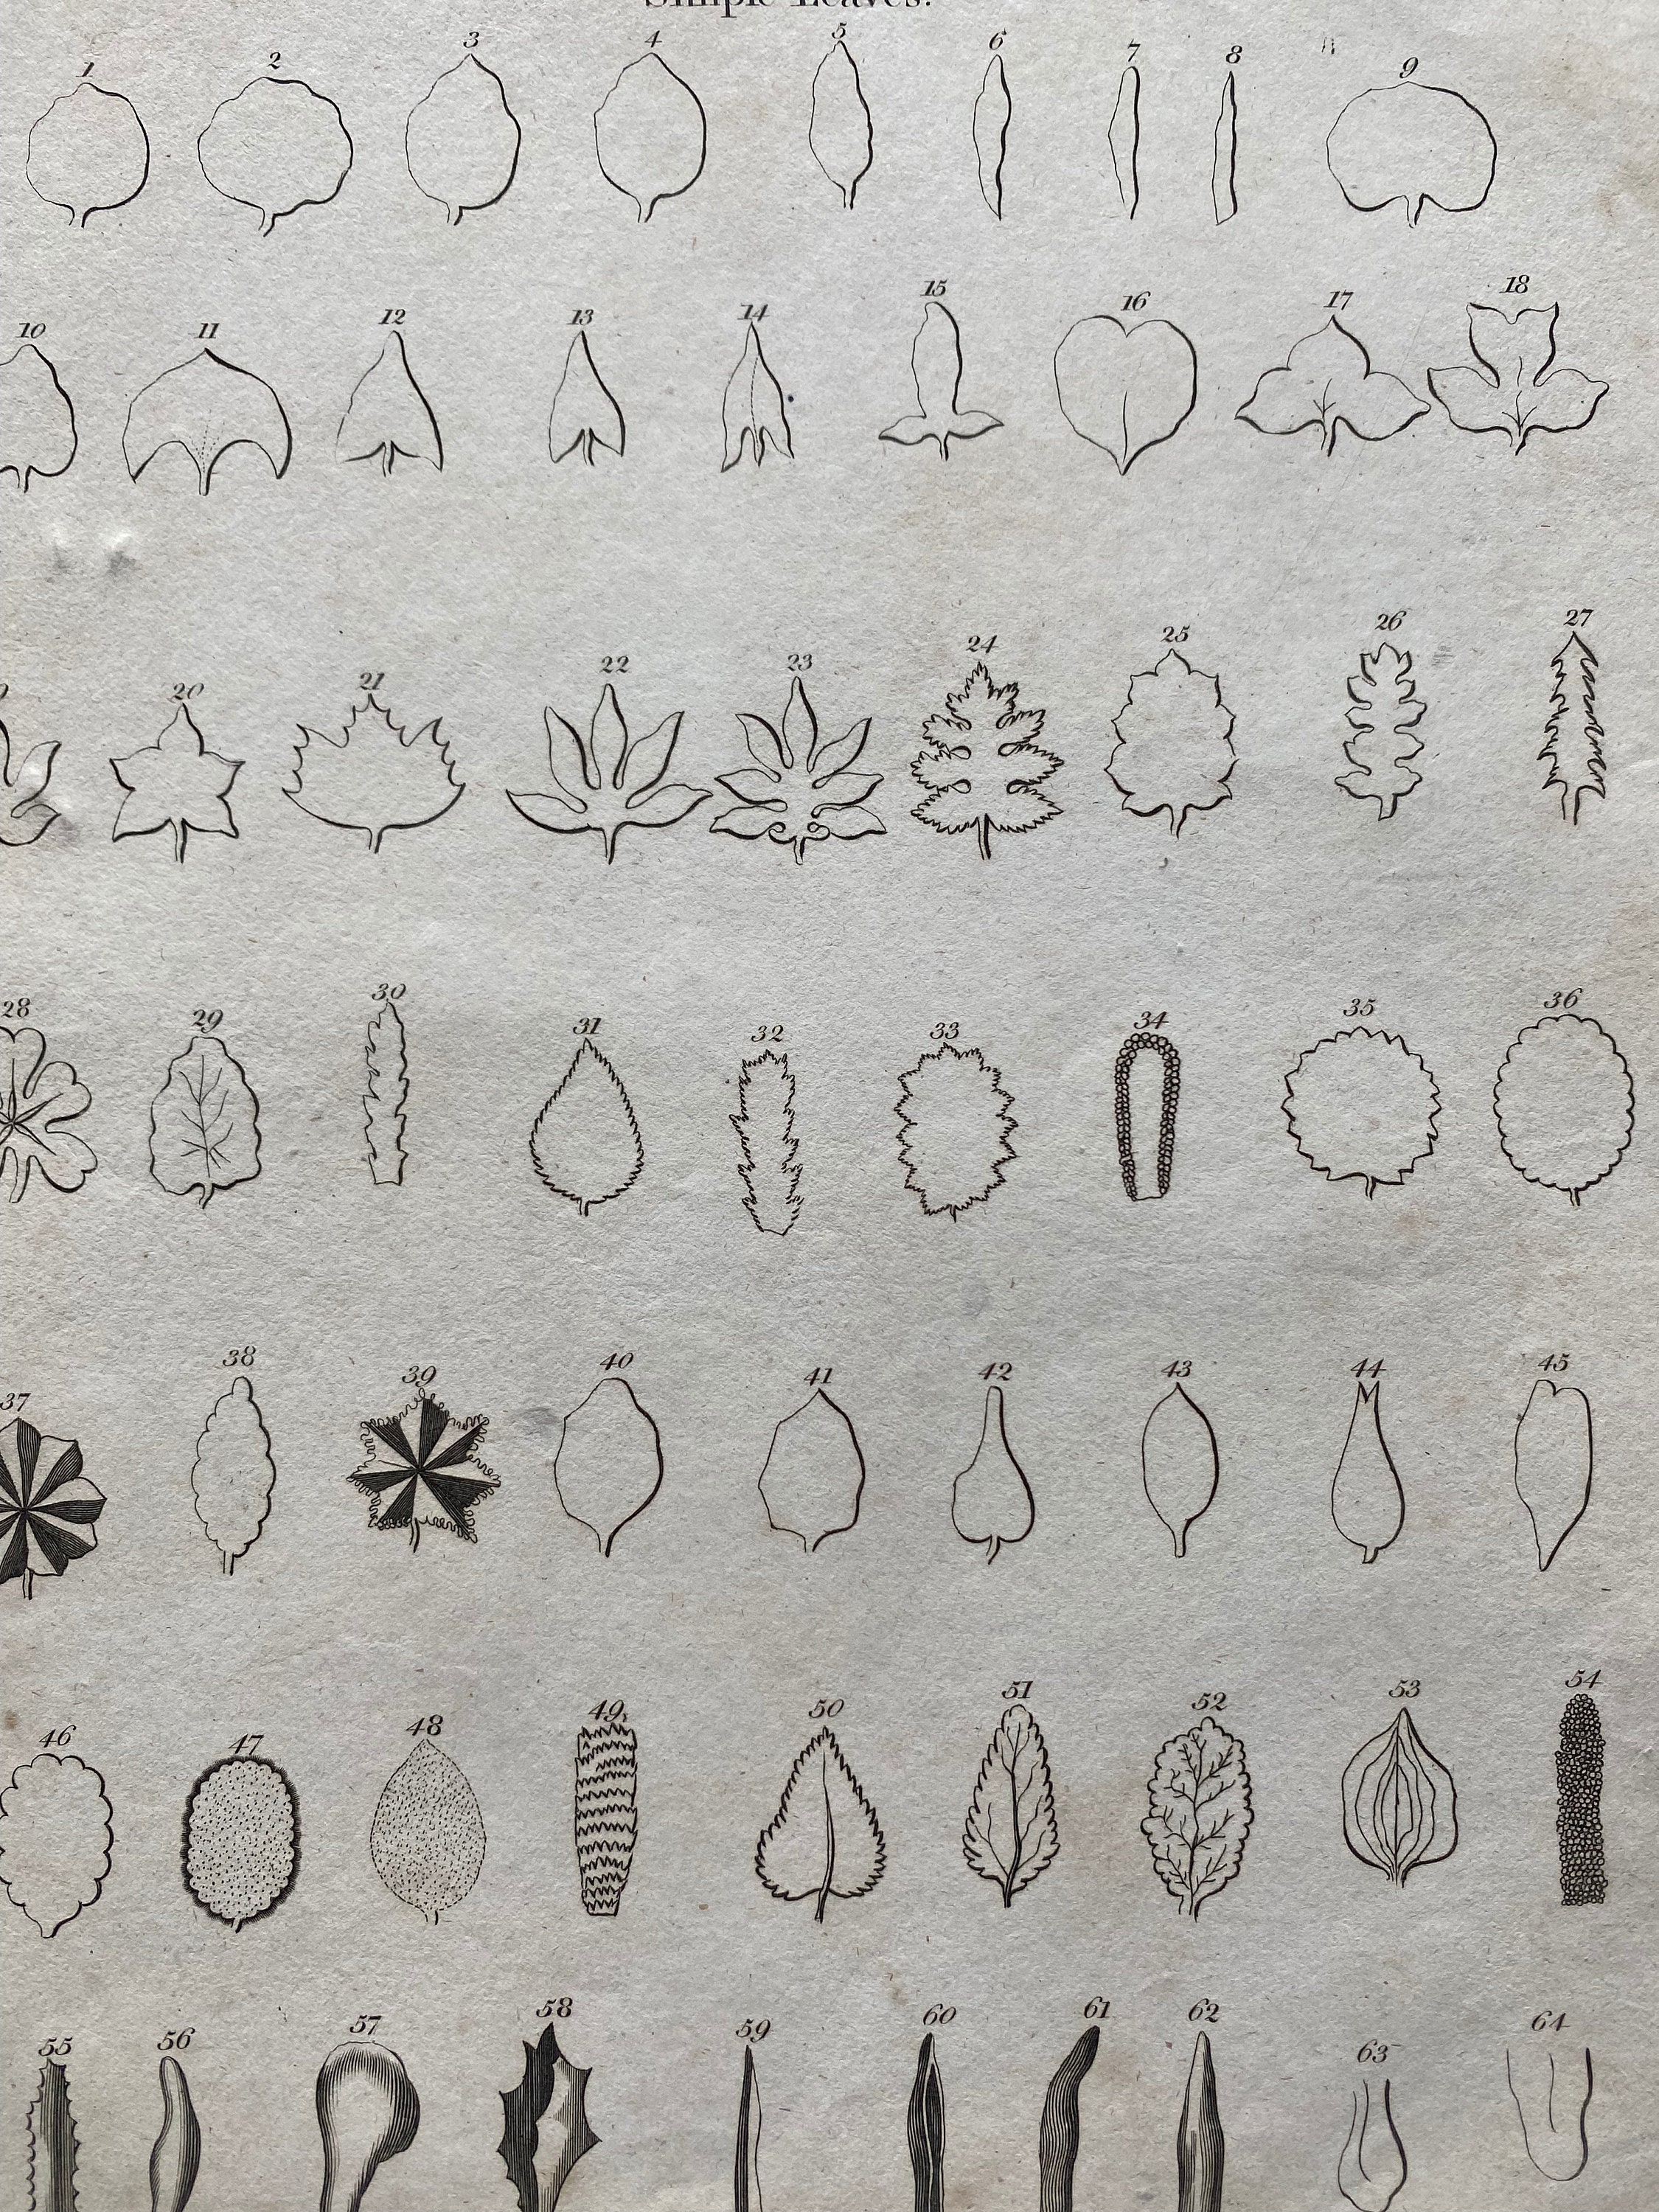 Simple Leaves.
1 2 3 4 5 6 7 8 9
10 11 12 13 14 15 16 17 18
20 21 22 23 24 25 26 27
28 29 30 31 32 33 34 35 36
37 38 39 40 41 42 43 44 45
46 47 48 49 50 51 52 53 54
55 56 57 58 59 60 61 62 63 64